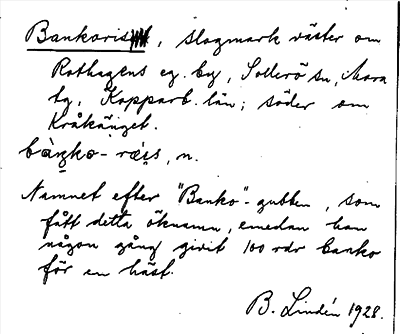 Bankoris, slogmark väster om
Rothagens eg. by, Sollerö sn, Mora
tg, Kopparb. län; söder om
Kråkänget.
bàŋko-ræ̀is, n.
Namnet efter "Banko"-gubben, som
fått detta öknamn, emedan han
någon gång givit 100 rdr banko
för en häst.
B. Lindén 1928.